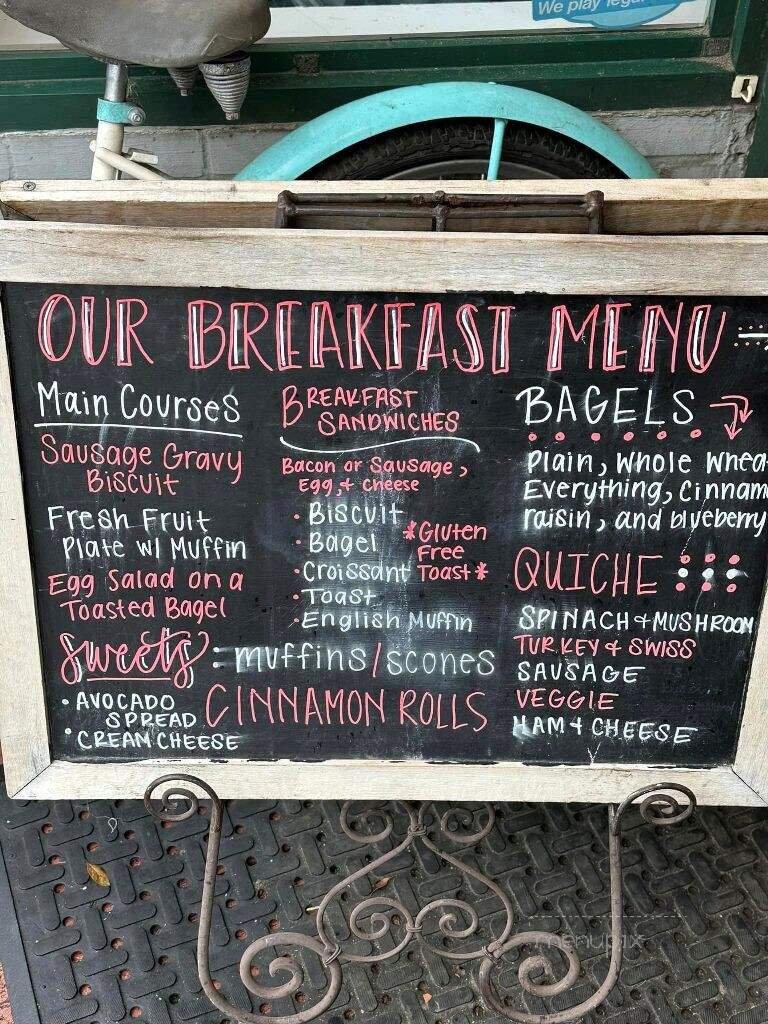 We play
OUR BREAKFAST MENU
Main Courses
Sausage Gravy
Biscuit
Fresh Fruit
Plate w/ Muffin
Egg Salad on a
Toasted Bagel
BREAKFAST
SANDWICHES
Bacon or Sausage,
Egg, + Cheese
• Biscuit
• Bagel
• Croissant
• Toast
• English Muffin
*Gluten
Free
Toast*
BAGELS
Plain, Whole Whea
Everything, Cinnam
raisin, and blueberry
QUICHE
SPINACH + MUSHROOM
TURKEY & SWISS
SAUSAGE
VEGGIE
HAM + CHEESE
Sweets: muffins/scones
CINNAMON ROLLS
• AVOCADO
SPREAD
• CREAM CHEESE
menupix